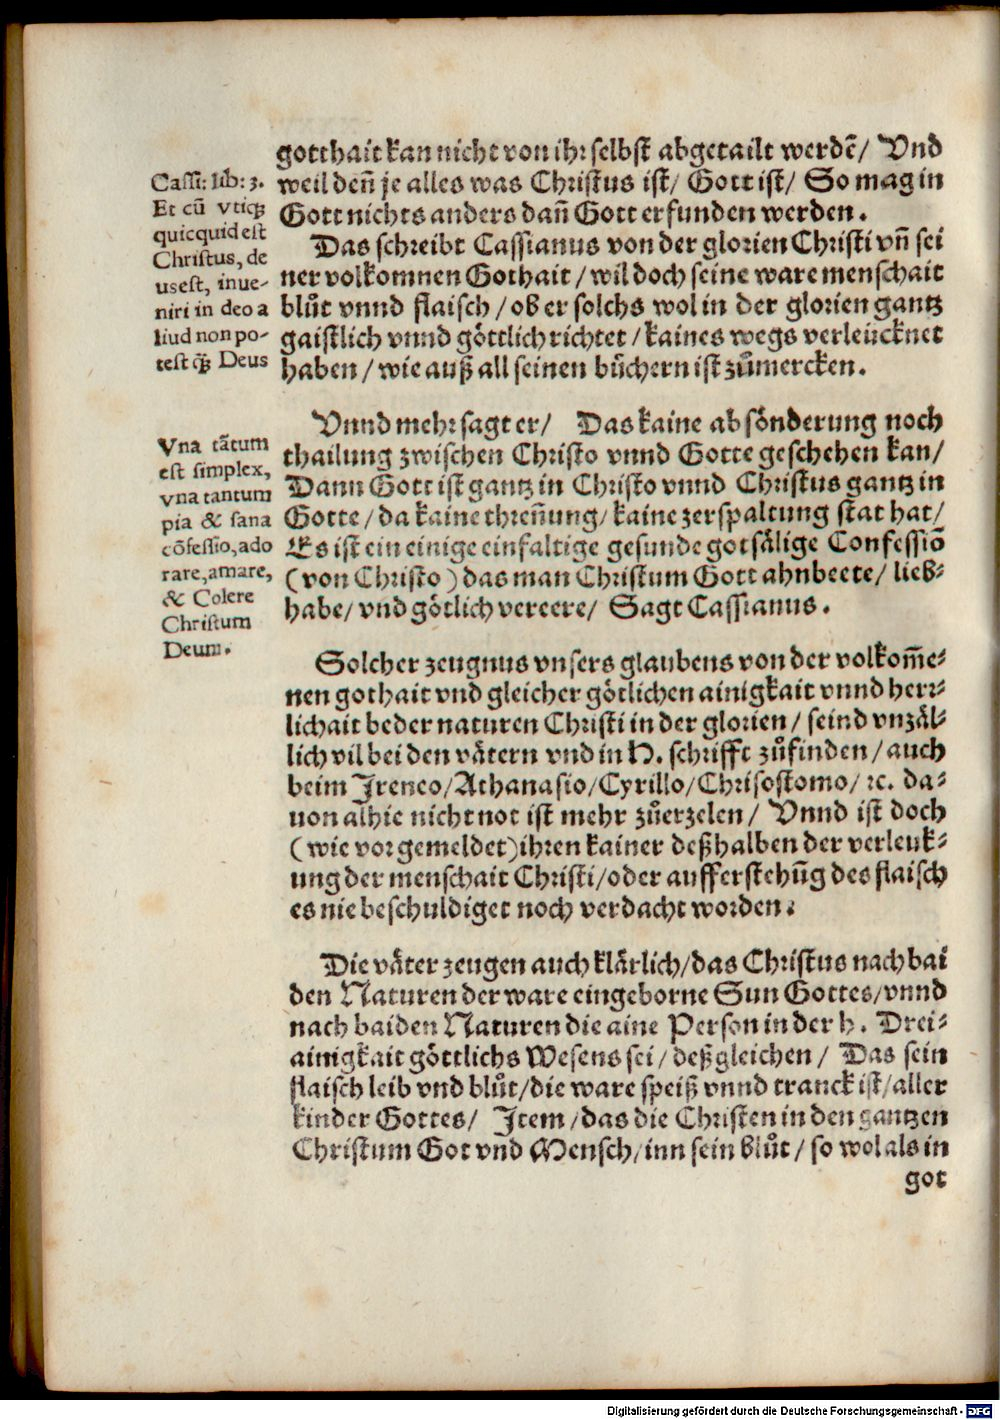 gotthait kan nicht von ihr selbst abgetailt werdē/ Vnd
weil deñ je alles was Christus ist/ Gott ist/ So mag in
Gott nichts anders dañ Gott erfunden werden.
Das schreibt Cassianus von der glorien Christi vñ sei
ner volkomnen Gothait/ wil doch seine ware menschait
blůt vnnd flaisch/ ob er solchs wol in der glorien gantz
gaistlich vnnd göttlich richtet/ kaines wegs verleücknet
haben/ wie auß all seinen bůchern ist zůmercken.
Cassi: lib: 3.
Et cū vtiqꝫ
quicquid est
Christus, de
us est, inue-
niri in deo a
liud non po-
test qꝫ Deus
Vnnd mehr sagt er/ Das kaine absönderung noch
thailung zwischen Christo vnnd Gotte geschehen kan/
Dann Gott ist gantz in Christo vnnd Christus gantz in
Gotte/ da kaine threñung/ kaine zerspaltung stat hat/
Es ist ein einige einfaltige gesunde gotsälige Confessiō
(von Christo) das man Christum Gott ahnbeete/ lieb-
habe/ vnd götlich vereere/ Sagt Cassianus.
Vna tātum
est simplex,
vna tantum
pia & sana
cōfessio, ado
rare, amare,
& Colere
Christum
Deum.
Solcher zeugnus vnsers glaubens von der volkom̄e-
nen gothait vnd gleicher götlichen ainigkait vnnd herr-
lichait beder naturen Christi in der glorien/ seind vnzäl-
lich vil bei den vätern vnd in H. schrifft zůfinden/ auch
beim Ireneo/ Athanasio/ Cyrillo/ Chrisostomo/ ꝛc. da-
uon alhie nicht not ist mehr zůerzelen/ Vnnd ist doch
(wie vor gemeldet) ihren kainer deßhalben der verleuk-
ung der menschait Christi/ oder aufferstehūg des flaisch
es nie beschuldiget noch verdacht worden.
Die väter zeugen auch klärlich/ das Christus nach bai
den Naturen der ware eingeborne Sun Gottes/ vnnd
nach baiden Naturen die aine Person in der h. Drei-
ainigkait göttlichs Wesens sei/ deßgleichen/ Das sein
flaisch leib vnd blůt/ die ware speiß vnnd tranck ist/ aller
kinder Gottes/ Item/ das die Christen in den gantzen
Christum Got vnd Mensch/ inn sein blůt/ so wol als in
got
Digitalisierung gefördert durch die Deutsche Forschungsgemeinschaft - DFG